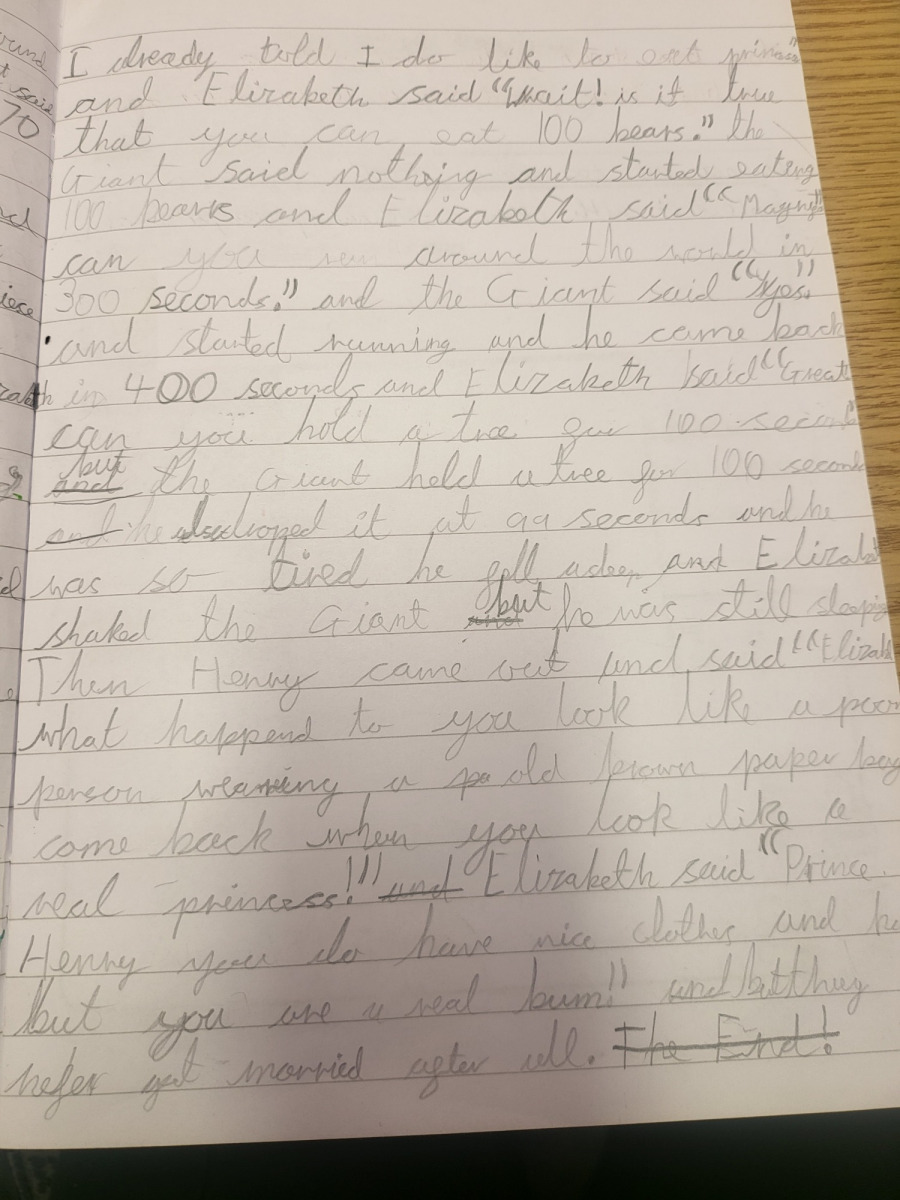 ound
I already told I do like to eat princess
t said
and Elizabeth said "Wait! is it true
70
that you can eat 100 bears." the
Giant said nothing and started eating
100 bears and Elizabeth said "Magnif
can you run around the world in
300 seconds." and the Giant said "Yes."
and started running and he came back
in 400 seconds and Elizabeth said "Great
can you hold a tree for 100 seconds
but
and the Giant held a tree for 100 seconds
and he droped it at 99 seconds and he
was so tired he fell asleep and Elizabe
shaked the Giant and but he was still sleeping
Then Henry came out and said "Elizabe
what happend to you look like a poor
person wearing a old brown paper bag
come back when you look like a
real princess!" and Elizabeth said "Prince
Henry you do have nice clothes and he
but you are a real bum!" and but they
nefer get married after all. The End!